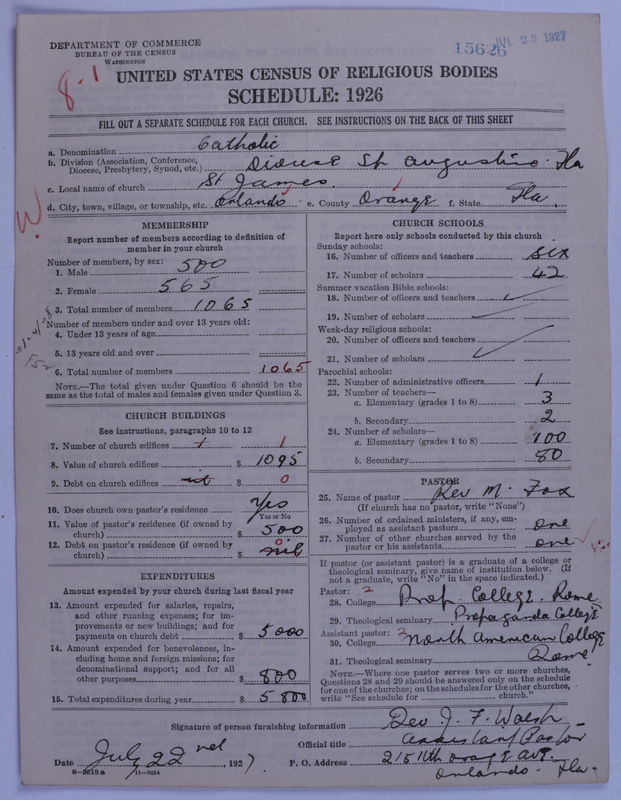 DEPARTMENT OF COMMERCE
BUREAU OF THE CENSUS
WASHINGTON
15626 JUL 25 1927
8-1
UNITED STATES CENSUS OF RELIGIOUS BODIES
SCHEDULE: 1926
FILL OUT A SEPARATE SCHEDULE FOR EACH CHURCH. SEE INSTRUCTIONS ON THE BACK OF THIS SHEET
a. Denomination Catholic
b. Division (Association, Conference, Diocese, Presbytery, Synod, etc.) Diocese St Augustine Fla
c. Local name of church St James
d. City, town, village, or township, etc. Orlando e. County Orange f. State Fla.
W
MEMBERSHIP
Report number of members according to definition of member in your church
Number of members, by sex:
1. Male 500
2. Female 565
3. Total number of members 1065
Number of members under and over 13 years old:
4. Under 13 years of age
5. 13 years old and over
6. Total number of members 1065
NOTE.—The total given under Question 6 should be the same as the total of males and females given under Question 3.
CHURCH BUILDINGS
See instructions, paragraphs 10 to 12
7. Number of church edifices 1 1
8. Value of church edifices $ 1095
9. Debt on church edifices $ 0
10. Does church own pastor's residence? Yes
Yes or No
11. Value of pastor's residence (if owned by church) $ 500
12. Debt on pastor's residence (if owned by church) $ nil 0
EXPENDITURES
Amount expended by your church during last fiscal year
13. Amount expended for salaries, repairs, and other running expenses; for improvements or new buildings; and for payments on church debt $ 5000
14. Amount expended for benevolences, including home and foreign missions; for denominational support; and for all other purposes $ 800
15. Total expenditures during year $ 5800
CHURCH SCHOOLS
Report here only schools conducted by this church
Sunday schools:
16. Number of officers and teachers six
17. Number of scholars 42
Summer vacation Bible schools:
18. Number of officers and teachers
19. Number of scholars
Week-day religious schools:
20. Number of officers and teachers
21. Number of scholars
Parochial schools:
22. Number of administrative officers 1
23. Number of teachers—
a. Elementary (grades 1 to 8) 3
b. Secondary 2
24. Number of scholars—
a. Elementary (grades 1 to 8) 100
b. Secondary 80
PASTOR
25. Name of pastor Rev M. Fox
(If church has no pastor, write "None")
26. Number of ordained ministers, if any, employed as assistant pastors one
27. Number of other churches served by the pastor or his assistants one
If pastor (or assistant pastor) is a graduate of a college or theological seminary, give name of institution below. (If not a graduate, write "No" in the space indicated.)
Pastor: 2
28. College Prop. College. Rome
29. Theological seminary Propaganda College
Assistant pastor: 2
30. College North American College
31. Theological seminary Rome
NOTE.—Where one pastor serves two or more churches, Questions 28 and 29 should be answered only on the schedule for one of the churches; on the schedules for the other churches, write "See schedule for church."
Signature of person furnishing information Rev J. F. Walsh
Official title Assistant Pastor
Date July 22nd, 1927. P. O. Address 215 Orange Ave.
Orlando - Fla.
8-5519a 11-9064